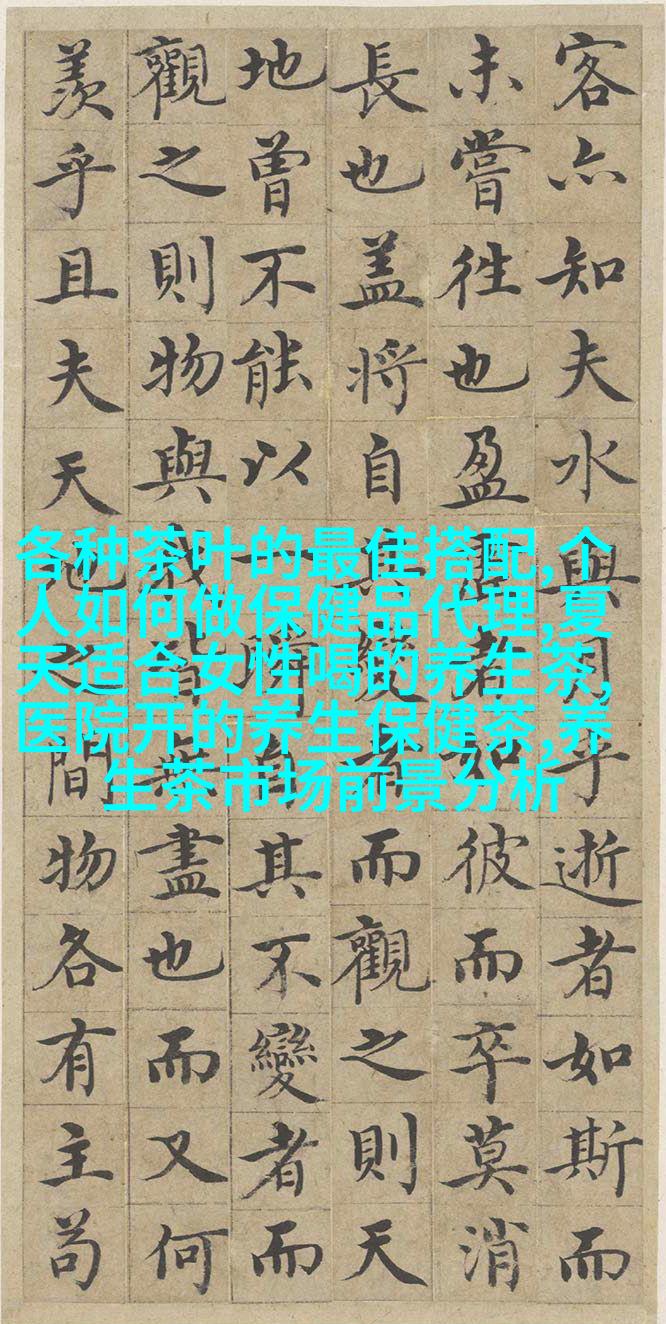 客亦知夫水與月乎逝者如斯而
未嘗徃也盈虛者如彼而卒莫消
長也盖將自其變者而觀之則天
地曾不能以一瞬自其不變者而
觀之則物與我皆無盡也而又何
羨乎且夫天地之間物各有主苟
各种茶叶的最佳搭配,个
人如何做保健品代理,夏
天适合女性喝的养生茶,
医院开的养生保健茶,养
生茶市场前景分析